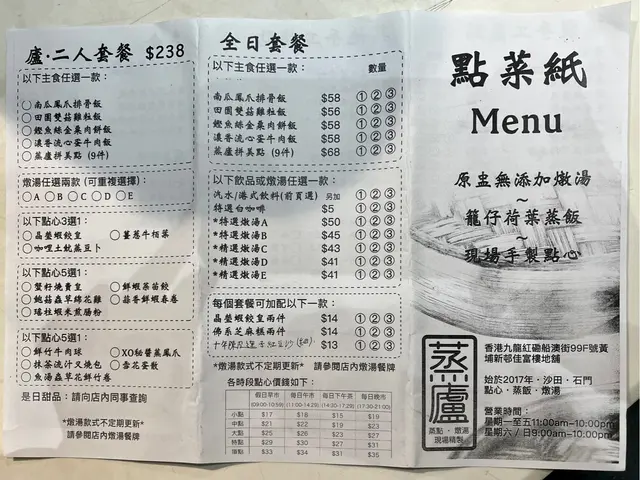 廬·二人套餐 $238
以下主食任選一款：
南瓜鳳爪排骨飯
田園雙菇雞粒飯
鰹魚絲金粟肉餅飯
濃香流心蛋牛肉飯
蒸廬拼美點 (9件)
燉湯任選兩款 (可重複選擇)：
A B C D E
以下點心3選1：
晶瑩蝦餃皇 薑蔥牛栢葉
咖哩土魷蒸蘿卜
以下點心5選1：
蟹籽燒賣皇 鮮蝦菜苗餃
鮑菇蟲草綿花雞 蒜香鮮蝦春卷
瑤柱蝦米煎腸粉
以下點心5選1：
鮮竹牛肉球 XO秘醬蒸鳳爪
抹茶流汁叉燒包 壽花蛋散
魚湯蟲草花鮮竹卷
是日甜品：請向店內同事查詢
*燉湯款式不定期更新*
請參閱店內燉湯餐牌
全日套餐
以下主食任選一款： 數量
南瓜鳳爪排骨飯 $58 ① ② ③
田園雙菇雞粒飯 $56 ① ② ③
鰹魚絲金粟肉餅飯 $58 ① ② ③
濃香流心蛋牛肉飯 $58 ① ② ③
蒸廬拼美點 (9件) $68 ① ② ③
以下飲品或燉湯任選一款：
汽水/港式飲料(前頁選) 另加 ① ② ③
特選白咖啡 $5 ① ② ③
*特選燉湯A $50 ① ② ③
*特選燉湯B $45 ① ② ③
*精選燉湯C $43 ① ② ③
*精選燉湯D $41 ① ② ③
*精選燉湯E $41 ① ② ③
每個套餐可加配以下一款：
晶瑩蝦餃皇兩件 $14 ① ② ③
佛系芝麻糕兩件 $14 ① ② ③
十年陳皮蓮子紅豆沙 $13 ① ② ③
*燉湯款式不定期更新* 請參閱店內燉湯餐牌
各時段點心價錢如下：
假日早市 每日午市 每日下午茶 每日晚市
(09:00-10:59) (11:00-14:29) (14:30-17:29) (17:30-21:00)
小點 $17 $18 $15 $19
中點 $21 $22 $19 $23
大點 $25 $26 $23 $27
特點 $29 $30 $27 $31
頂點 $33 $34 $31 $35
點菜紙
Menu
原盅無添加燉湯
~
籠仔荷葉蒸飯
~
現場手製點心
蒸廬
蒸點·燉湯
現場精製
香港九龍紅磡船澳街99F號黃
埔新邨佳富樓地舖
始於2017年·沙田·石門
點心·蒸飯·燉湯
營業時間：
星期一至五11:00am~10:00pm
星期六 / 日9:00am~10:00pm